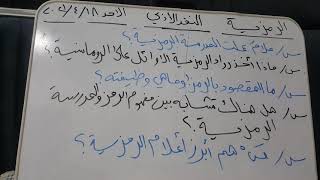 الرمزية النقد الأدبي الأحد ١٨/٤/٢٠٢١
س/ علامَ عملت المدرسة الرمزية؟
س/ ماذا أخذ رواد الرمزية الأوائل على الرومانسية؟
س/ ما المقصود بالرمز وماهي وظيفته؟
س/ هل هناك تشابه بين مفهوم الرمز والمدرسة
الرمزية؟
س/ مَنْ هم أبرز أعلام الرمزية؟